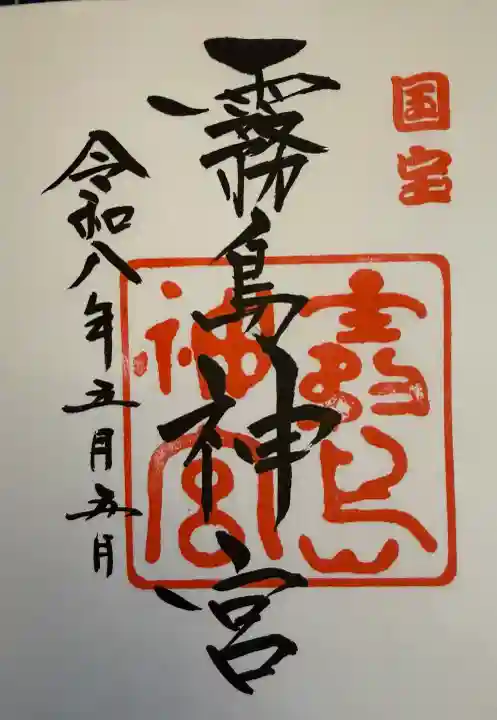 国宝
霧島神宮
霧島神宮
令和八年五月五月